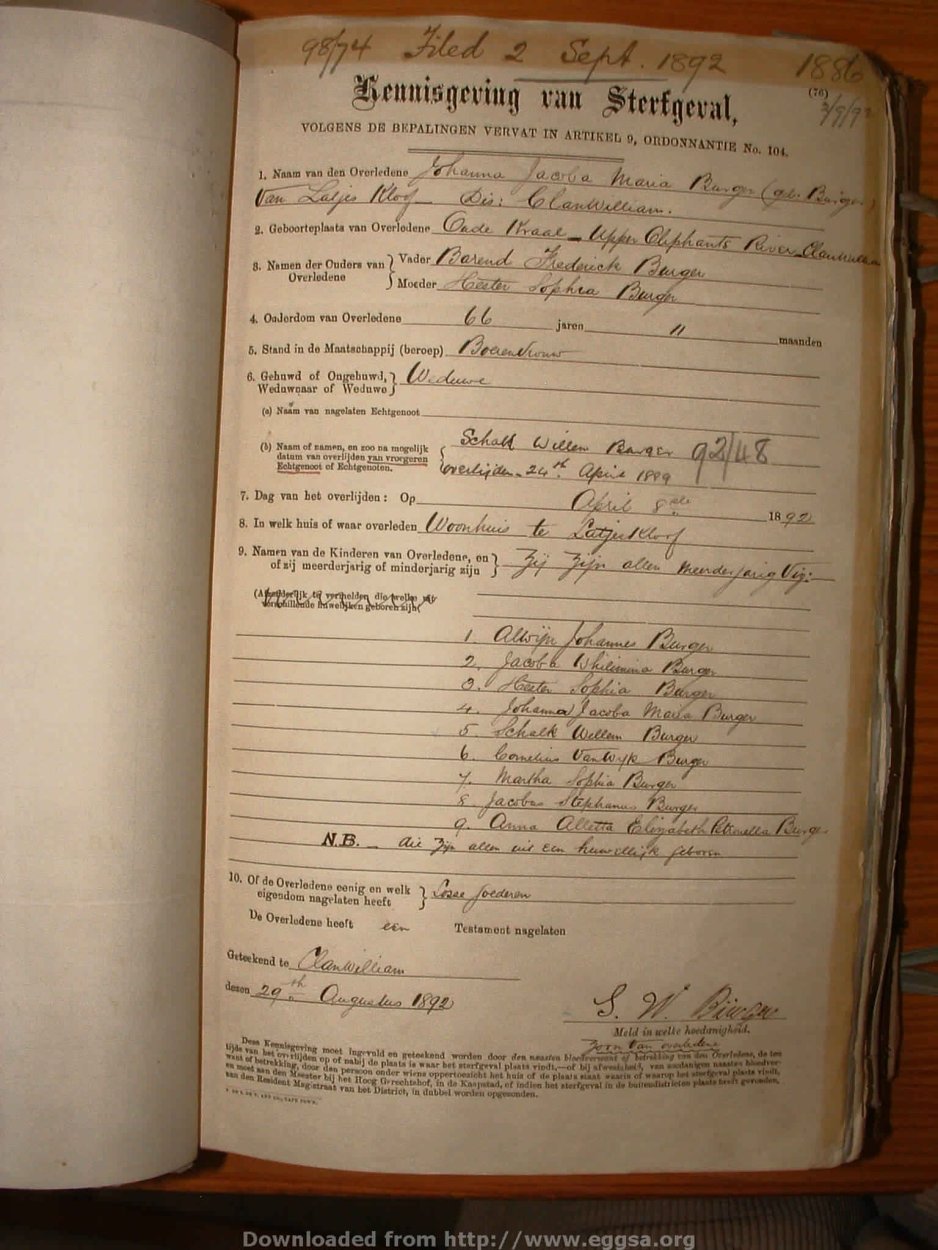 98/74 Filed 2 Sept. 1892 1886
(76)
2/9/92
Kennisgeving van Sterfgeval,
VOLGENS DE BEPALINGEN VERVAT IN ARTIKEL 9, ORDONNANTIE No. 104.
1. Naam van den Overledene Johanna Jacoba Maria Burger (geb. Burger)
Van Latjes Kloof Dis: ClanWilliam.
2. Geboorteplaats van Overledene Oude Kraal Upper Oliphants River Clanwilliam
3. Namen der Ouders van Overledene Vader Barend Frederick Burger
Moeder Hester Sophia Burger
4. Ouderdom van Overledene 66 jaren 11 maanden
5. Stand in de Maatschappij (beroep) BoerenVrouw
6. Gehuwd of Ongehuwd, Weduwnaar of Weduwe Weduwe
(a) Naam van nagelaten Echtgenoot
(b) Naam of namen, en zoo na mogelijk datum van overlijden van vroegeren Echtgenoot of Echtgenoten. Schalk Willem Burger 92/48
overlijden 24th April 1889
7. Dag van het overlijden: Op April 8ste 1892
8. In welk huis of waar overleden Woonhuis te Latjes Kloof
9. Namen van de Kinderen van Overledene, en of zij meerderjarig of minderjarig zijn Zij Zijn allen meerderjarig Viz:
(Afzonderlijk te vermelden die welke uit verschillende huwelijken geboren zijn)
1. Alwijn Johannes Burger
2. Jacoba Whilimina Burger
3. Hester Sophia Burger
4. Johanna Jacoba Maria Burger
5. Schalk Willem Burger
6. Cornelius VanWyk Burger
7. Martha Sophia Burger
8. Jacobus Stephanus Burger
9. Anna Alletta Elizabeth Petronella Burger
N.B. die Zijn allen uit een huwellijk geboren
10. Of de Overledene eenig en welk eigendom nagelaten heeft Losse Goederen
De Overledene heeft een Testament nagelaten
Geteekend te ClanWilliam
dezen 29th Augustus 1892
S. W. Burger
Meld in welke hoedanigheid.
Zoon Van overledene
Deze Kennisgeving moet ingevuld en geteekend worden door den naasten bloedverwant of betrekking van den Overledene, de ten
tijde van het overlijden op of nabij de plaats is waar het sterfgeval plaats vindt,—of bij afwezigheid, van zoodanigen naasten bloedver-
want of betrekking, door den persoon onder wiens oppertoezicht het huis of de plaats staat waarin of waarop het sterfgeval plaats vindt,
en moet aan den Meester bij het Hoog Gerechtshof, in de Kaapstad, of indien het sterfgeval in de buitendistricten plaats heeft gevonden,
aan den Resident Magistraat van het District, in dubbel worden opgezonden.
Downloaded from http://www.eggsa.org